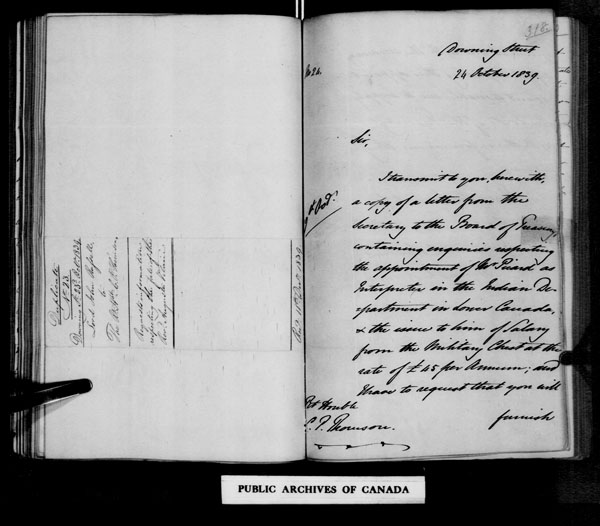 Duplicate
No. 23
Downing St 23 Oct 1839
Lord John Russell
to
The Rt Hon. C. P. Thomson
Requests information
respecting the
318
Downing Street
24 October 1839.
No 24.
Sir,
I transmit to you, herewith,
a copy of a letter from the
Secretary to the Board of Treasury,
containing enquiries respecting
the appointment of Mr Picard as
Interpreter in the Indian De-
partment in Lower Canada,
& the issue to him of Salary
from the Military Chest at the
rate of £45 per Annum; and
I have to request that you will
Rt Honble
C. P. Thomson.
furnish
PUBLIC ARCHIVES OF CANADA